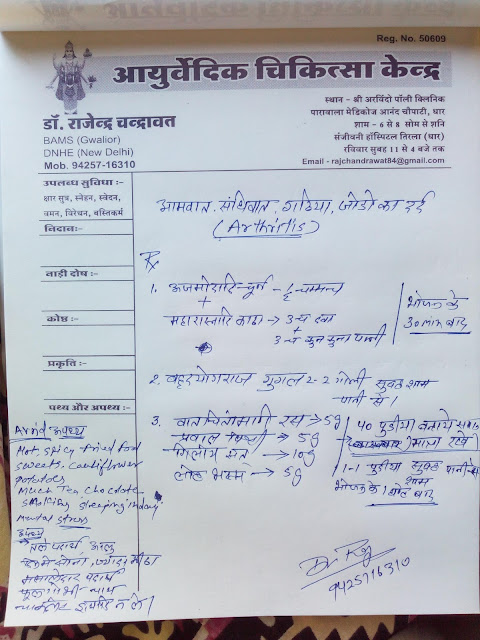 Reg. No. 50609
आयुर्वेदिक चिकित्सा केन्द्र
डॉ. राजेन्द्र चन्द्रावत
BAMS (Gwalior)
DNHE (New Delhi)
Mob. 94257-16310
स्थान - श्री अरविंदो पॉली क्लिनिक
पारावाला मेडिकोज आनंद चौपाटी, धार
शाम - 6 से 8 सोम से शनि
संजीवनी हॉस्पिटल तिरला (धार)
रविवार सुबह 11 से 4 बजे तक
Email - rajchandrawat84@gmail.com
उपलब्ध सुविधा :-
क्षार सूत्र, स्नेहन, स्वेदन,
वमन, विरेचन, बस्तिकर्म
निदान:-
नाड़ी दोष :-
कोष्ठ :-
प्रकृति :-
पथ्य और अपथ्य :-
आमवात, संधिवात, गठिया, जोडो का दर्द
(Arthritis)
Rx
1. अजमोदादि चूर्ण - 1/2 चम्मच
+
महारास्नादि काढा → 3 च दवा
+
3 च कुन कुना पानी
भोजन के
30 min बाद
2. वृहदयोगराज गुगल 2-2 गोली सुबह शाम
पानी से।
3. वातचिंतामणी रस → 5g
प्रवाल पिष्टी → 5g
गिलोय सत्व → 10g
लोह भस्म → 5g
40 पुडीया बनाये
मात्रा रखे
1-1 पुडीया सुबह शाम पानी से
भोजन के 1 घंटे बाद
Avoid अपथ्य
Hot, spicy fried food
sweets, cauliflower
potatoes
Much Tea, chocolate
smoking sleeping in day
mental stress
अपथ्य
तले पदार्थ आलू
ज्यादा मीठा
मसालेदार पदार्थ
फूल गोभी चाय
चाकलेट इत्यादि न ले।
Dr Raj
9425716310